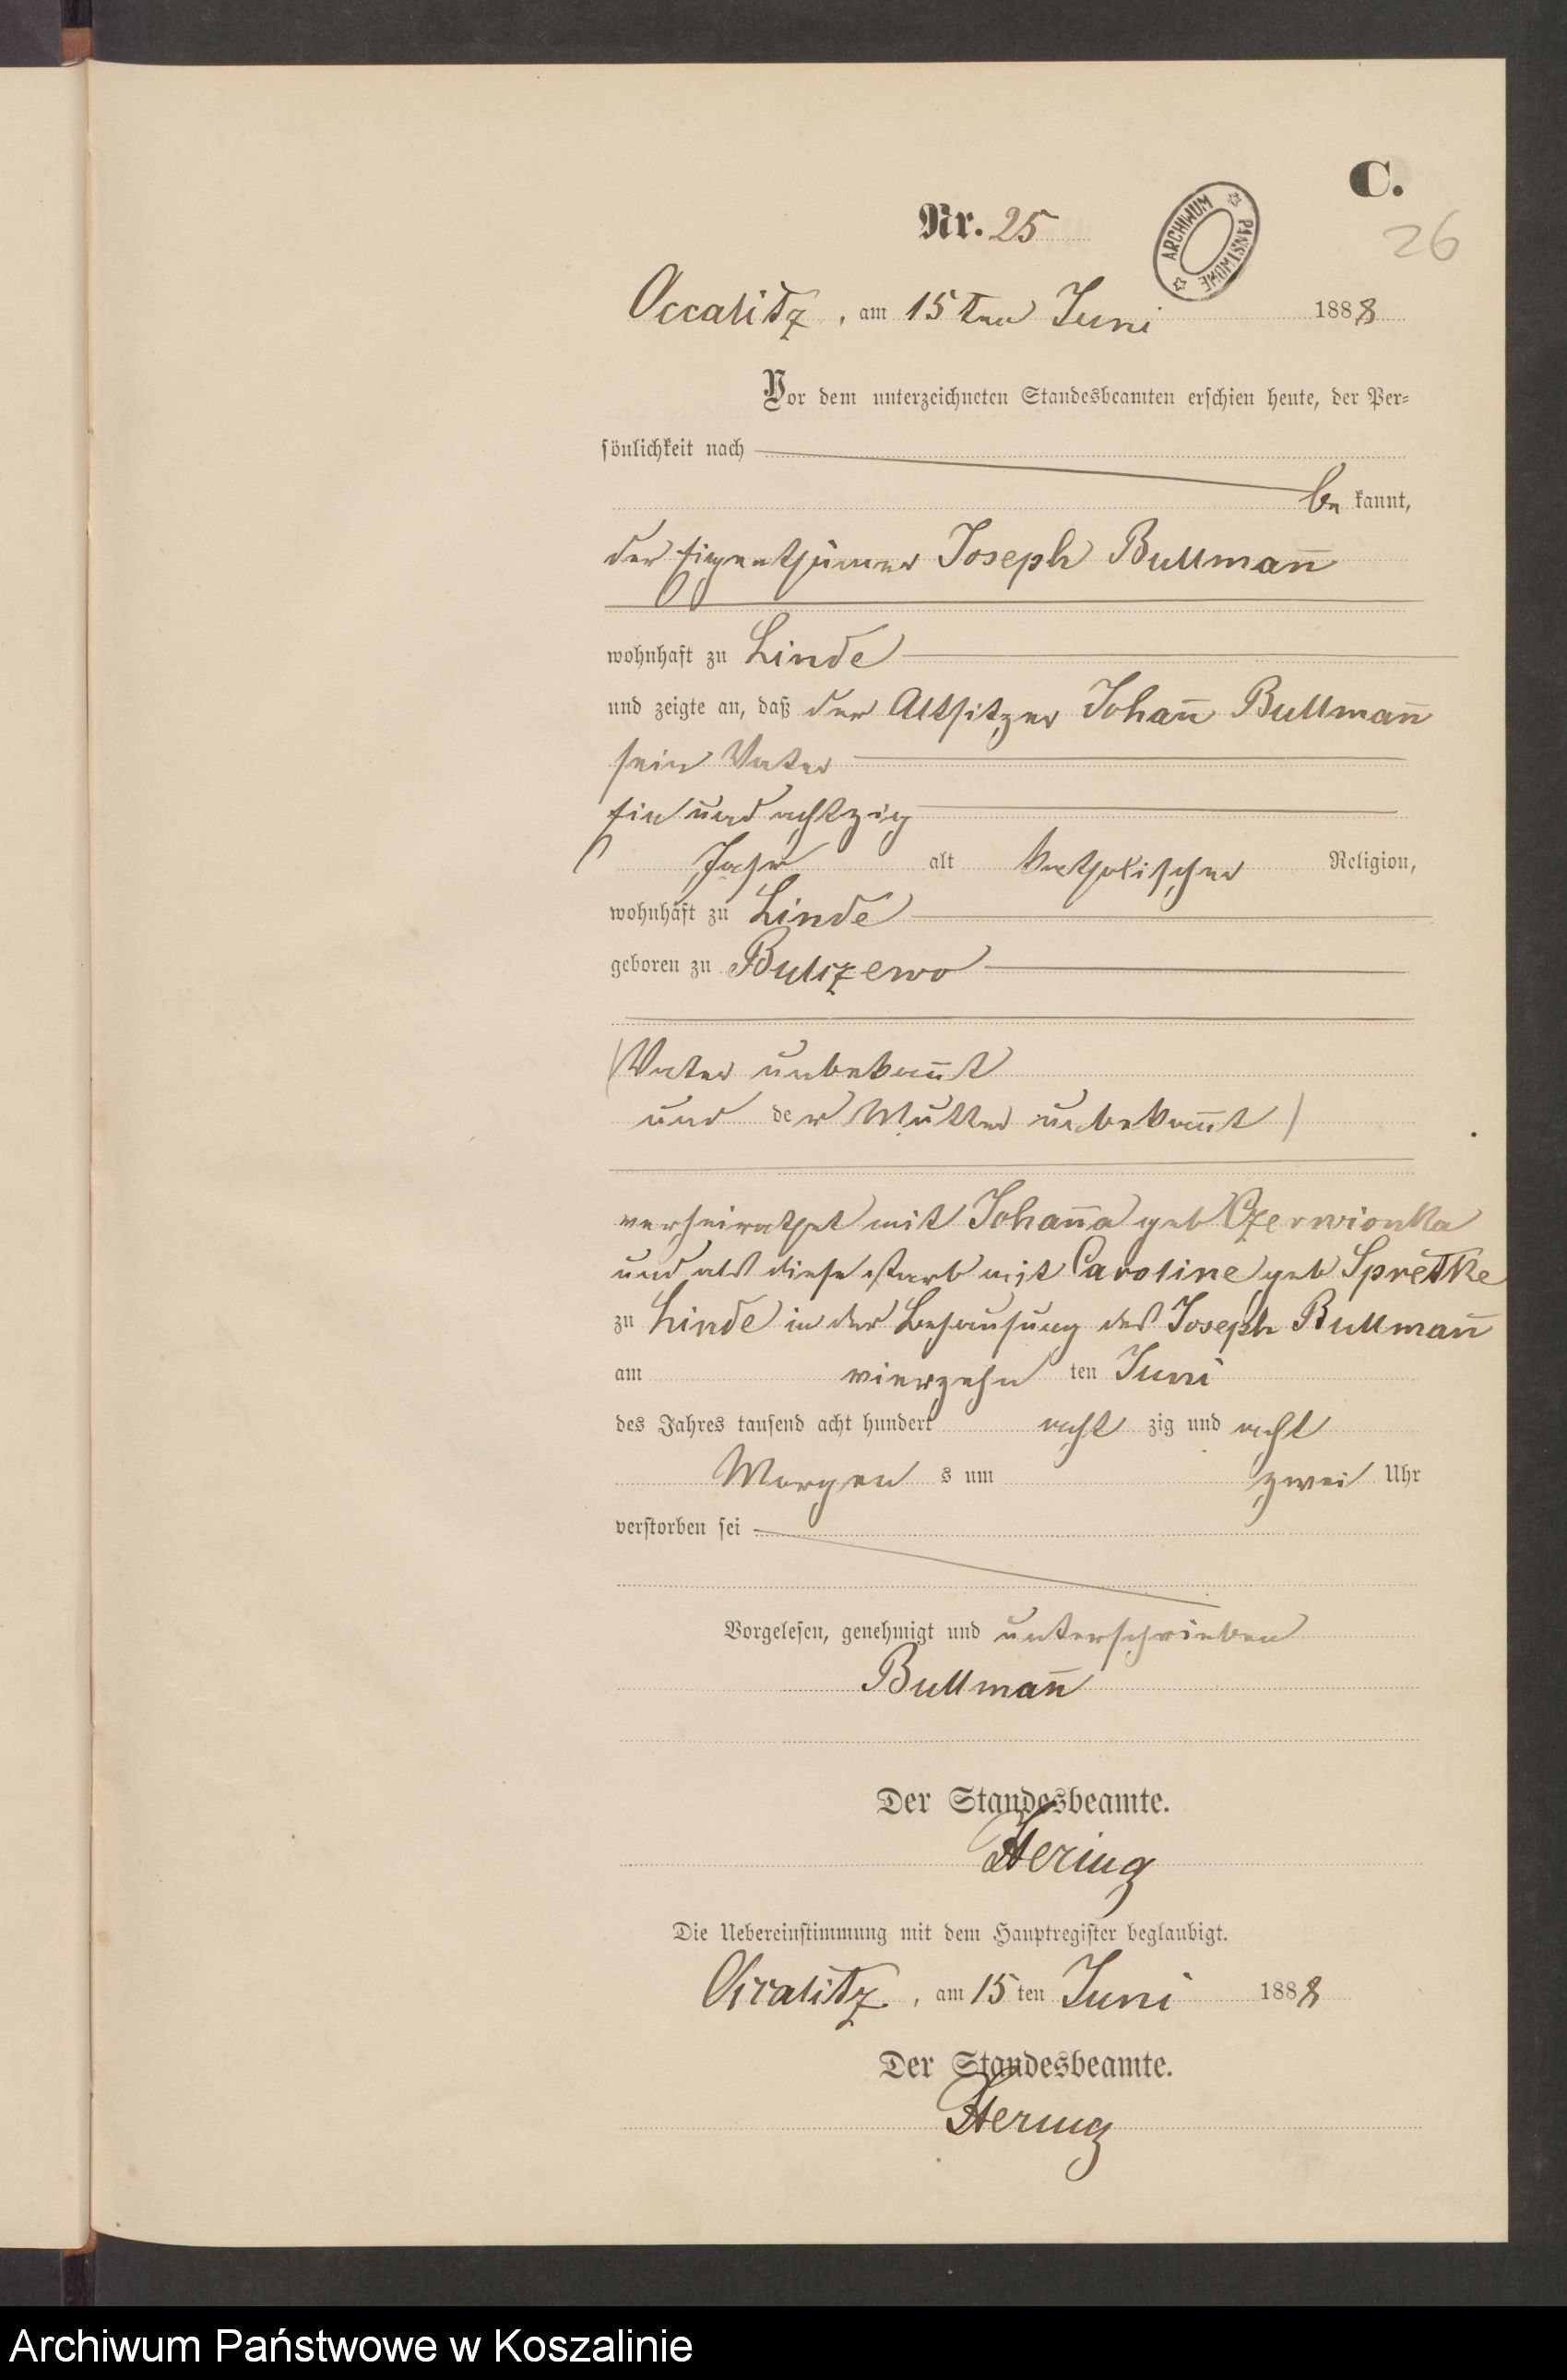 C.
Nr. 25
ARCHIWUM PAŃSTWOWE
26
Occalitz, am 15ten Juni 1888
Vor dem unterzeichneten Standesbeamten erschien heute, der Per=
sönlichkeit nach
be kannt,
der Eigenthümer Joseph Bullmañ
wohnhaft zu Linde
und zeigte an, daß der Altsitzer Johañ Bullmañ
sein Vater
Ein und achtzig
Jahr alt katholischer Religion,
wohnhaft zu Linde
geboren zu
(Vater unbekañt
und der Mutter unbekañt)
verheirathet mit Johaña geb Czerwionka
und als diese starb mit Caroline geb Spretke
zu Linde in der Behausung des Joseph Bullmañ
am vierzehn ten Juni
des Jahres tausend acht hundert acht zig und acht
Morgen s um zwei Uhr
verstorben sei
Vorgelesen, genehmigt und unterschrieben
Bullmañ
Der Standesbeamte.
Hering
Die Uebereinstimmung mit dem Hauptregister beglaubigt.
Occalitz, am 15 ten Juni 1888
Der Standesbeamte.
Hering
Archiwum Państwowe w Koszalinie